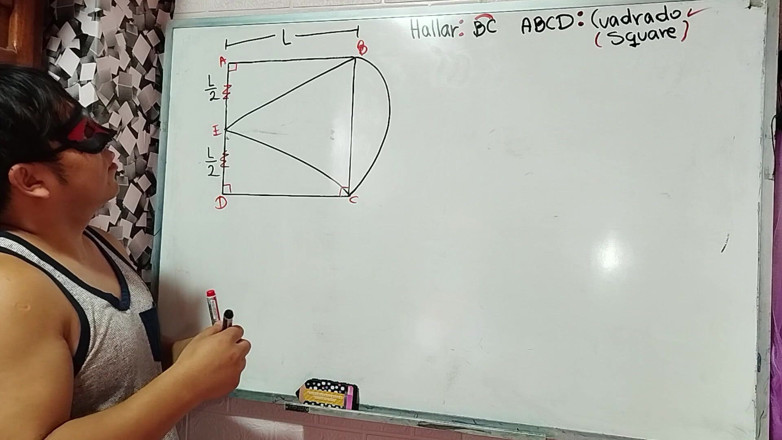 Hallar: BC ABCD: Cuadrado
(Square)
L
A
B
L/2
E
L/2
D
C